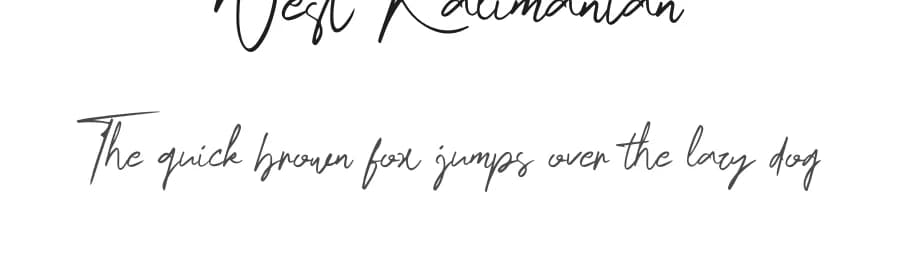 West Kalimantan
The quick brown fox jumps over the lazy dog